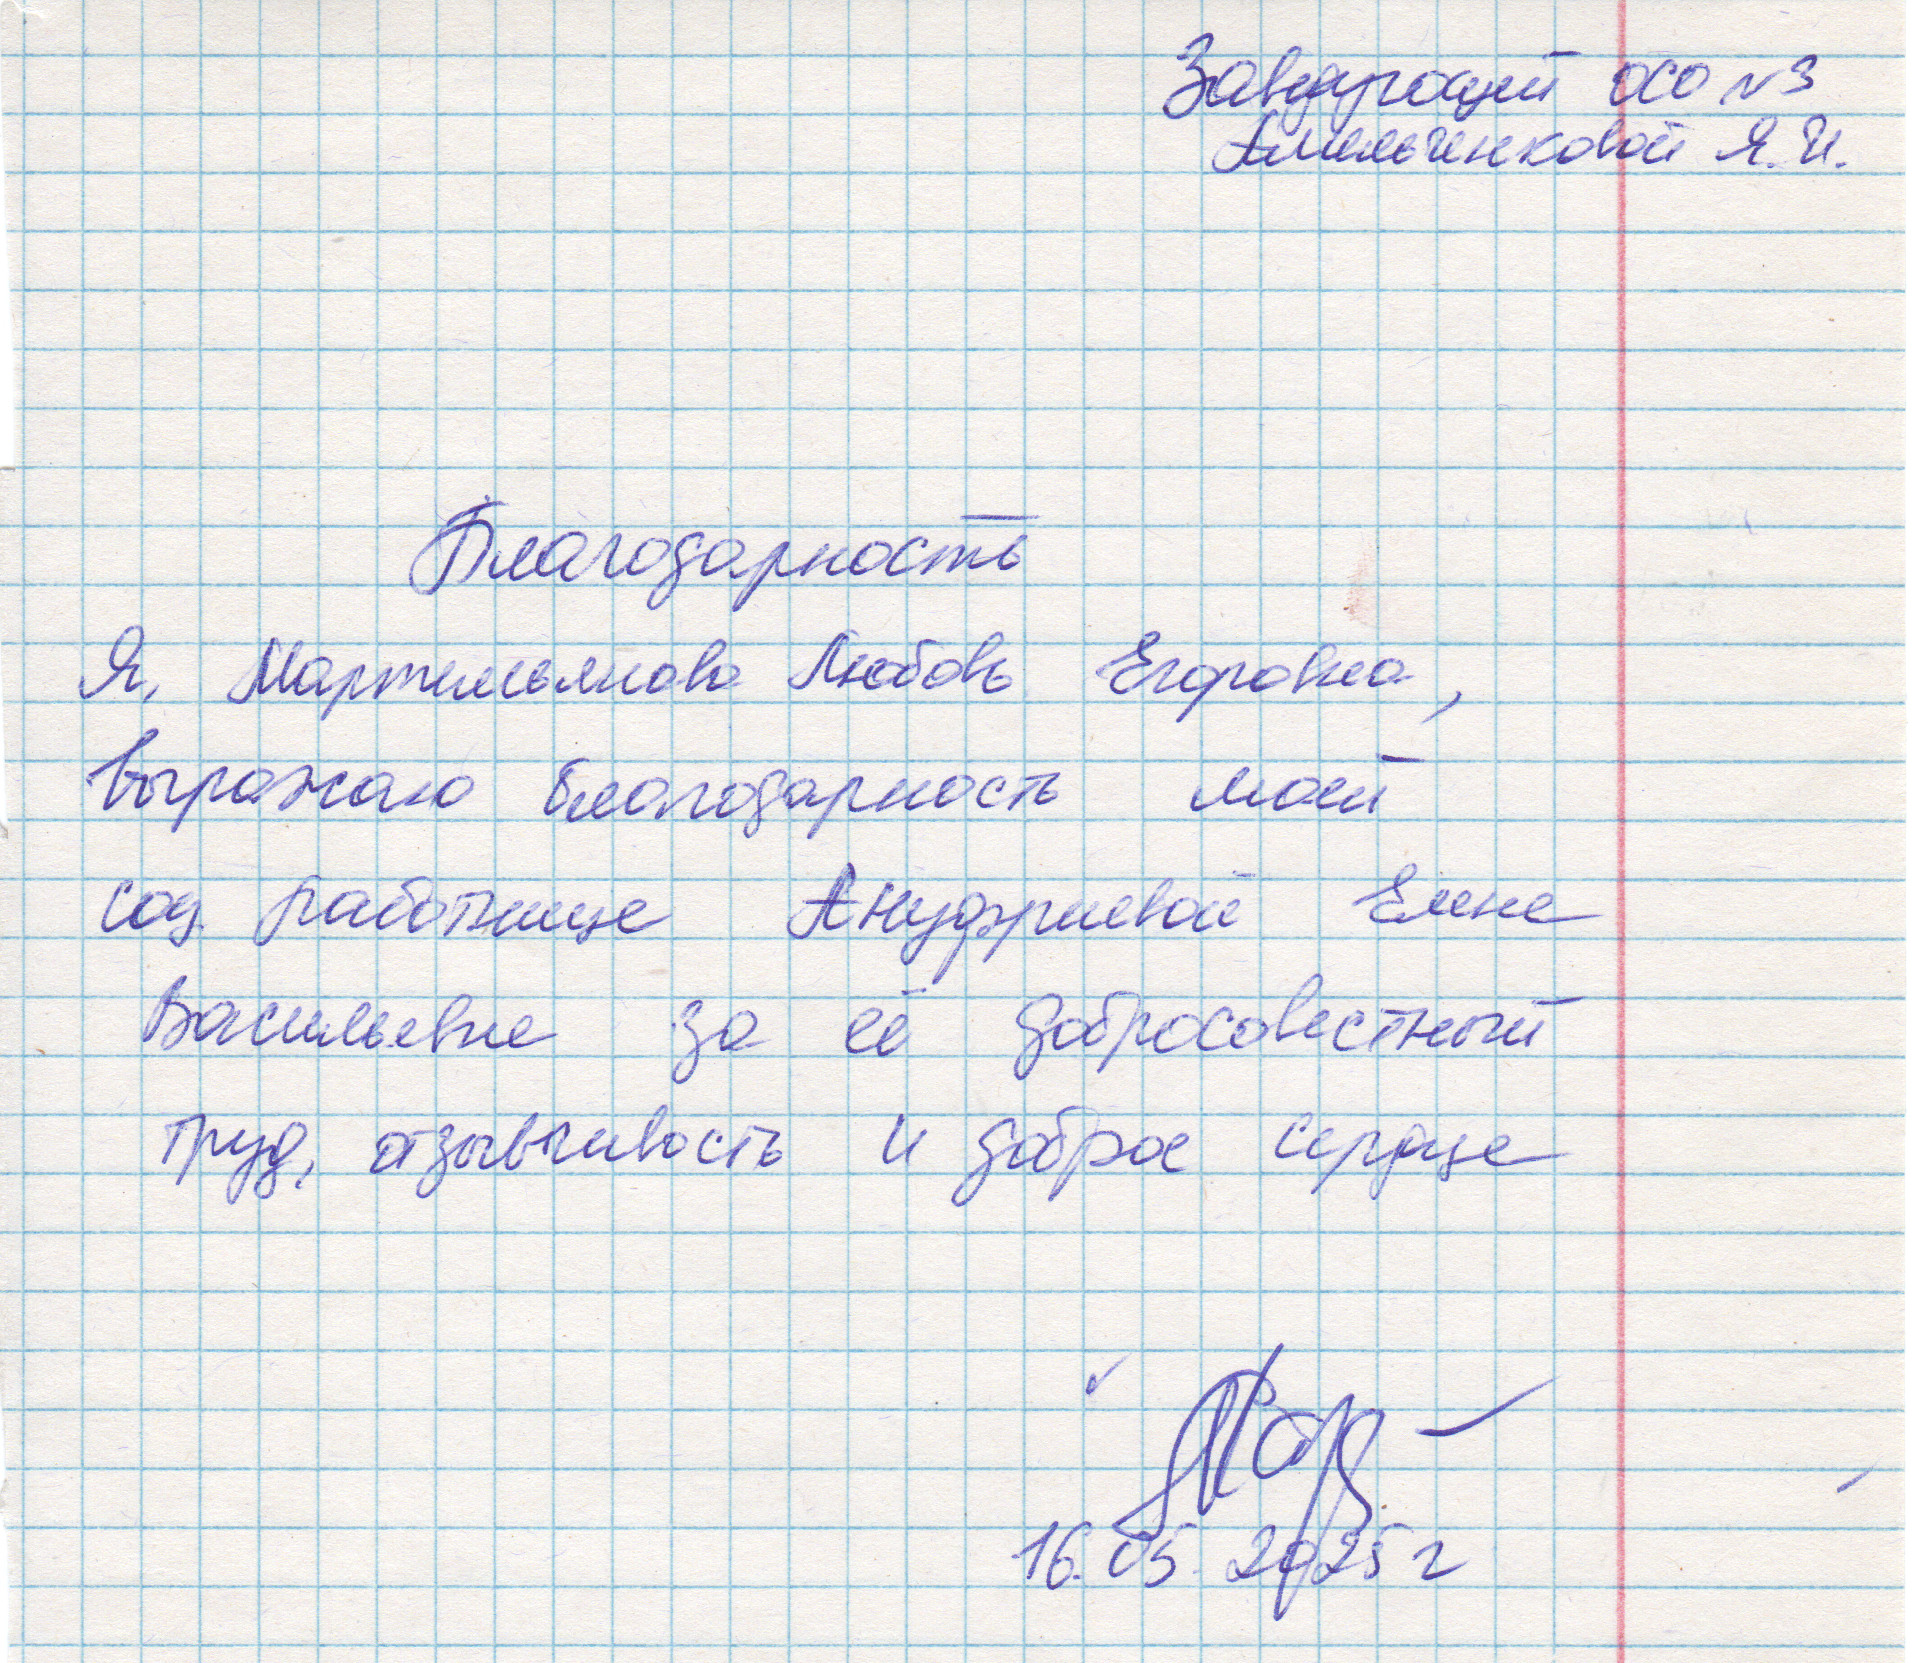 Заведующей ОСО №3
Амельченковой Я.И.
Благодарность
Я, Мартемьянова Любовь Егоровна,
выражаю благодарность моей
соц. работнице Ануфриевой Елене
Васильевне за её добросовестный
труд, отзывчивость и доброе сердце
16.05.2025 г